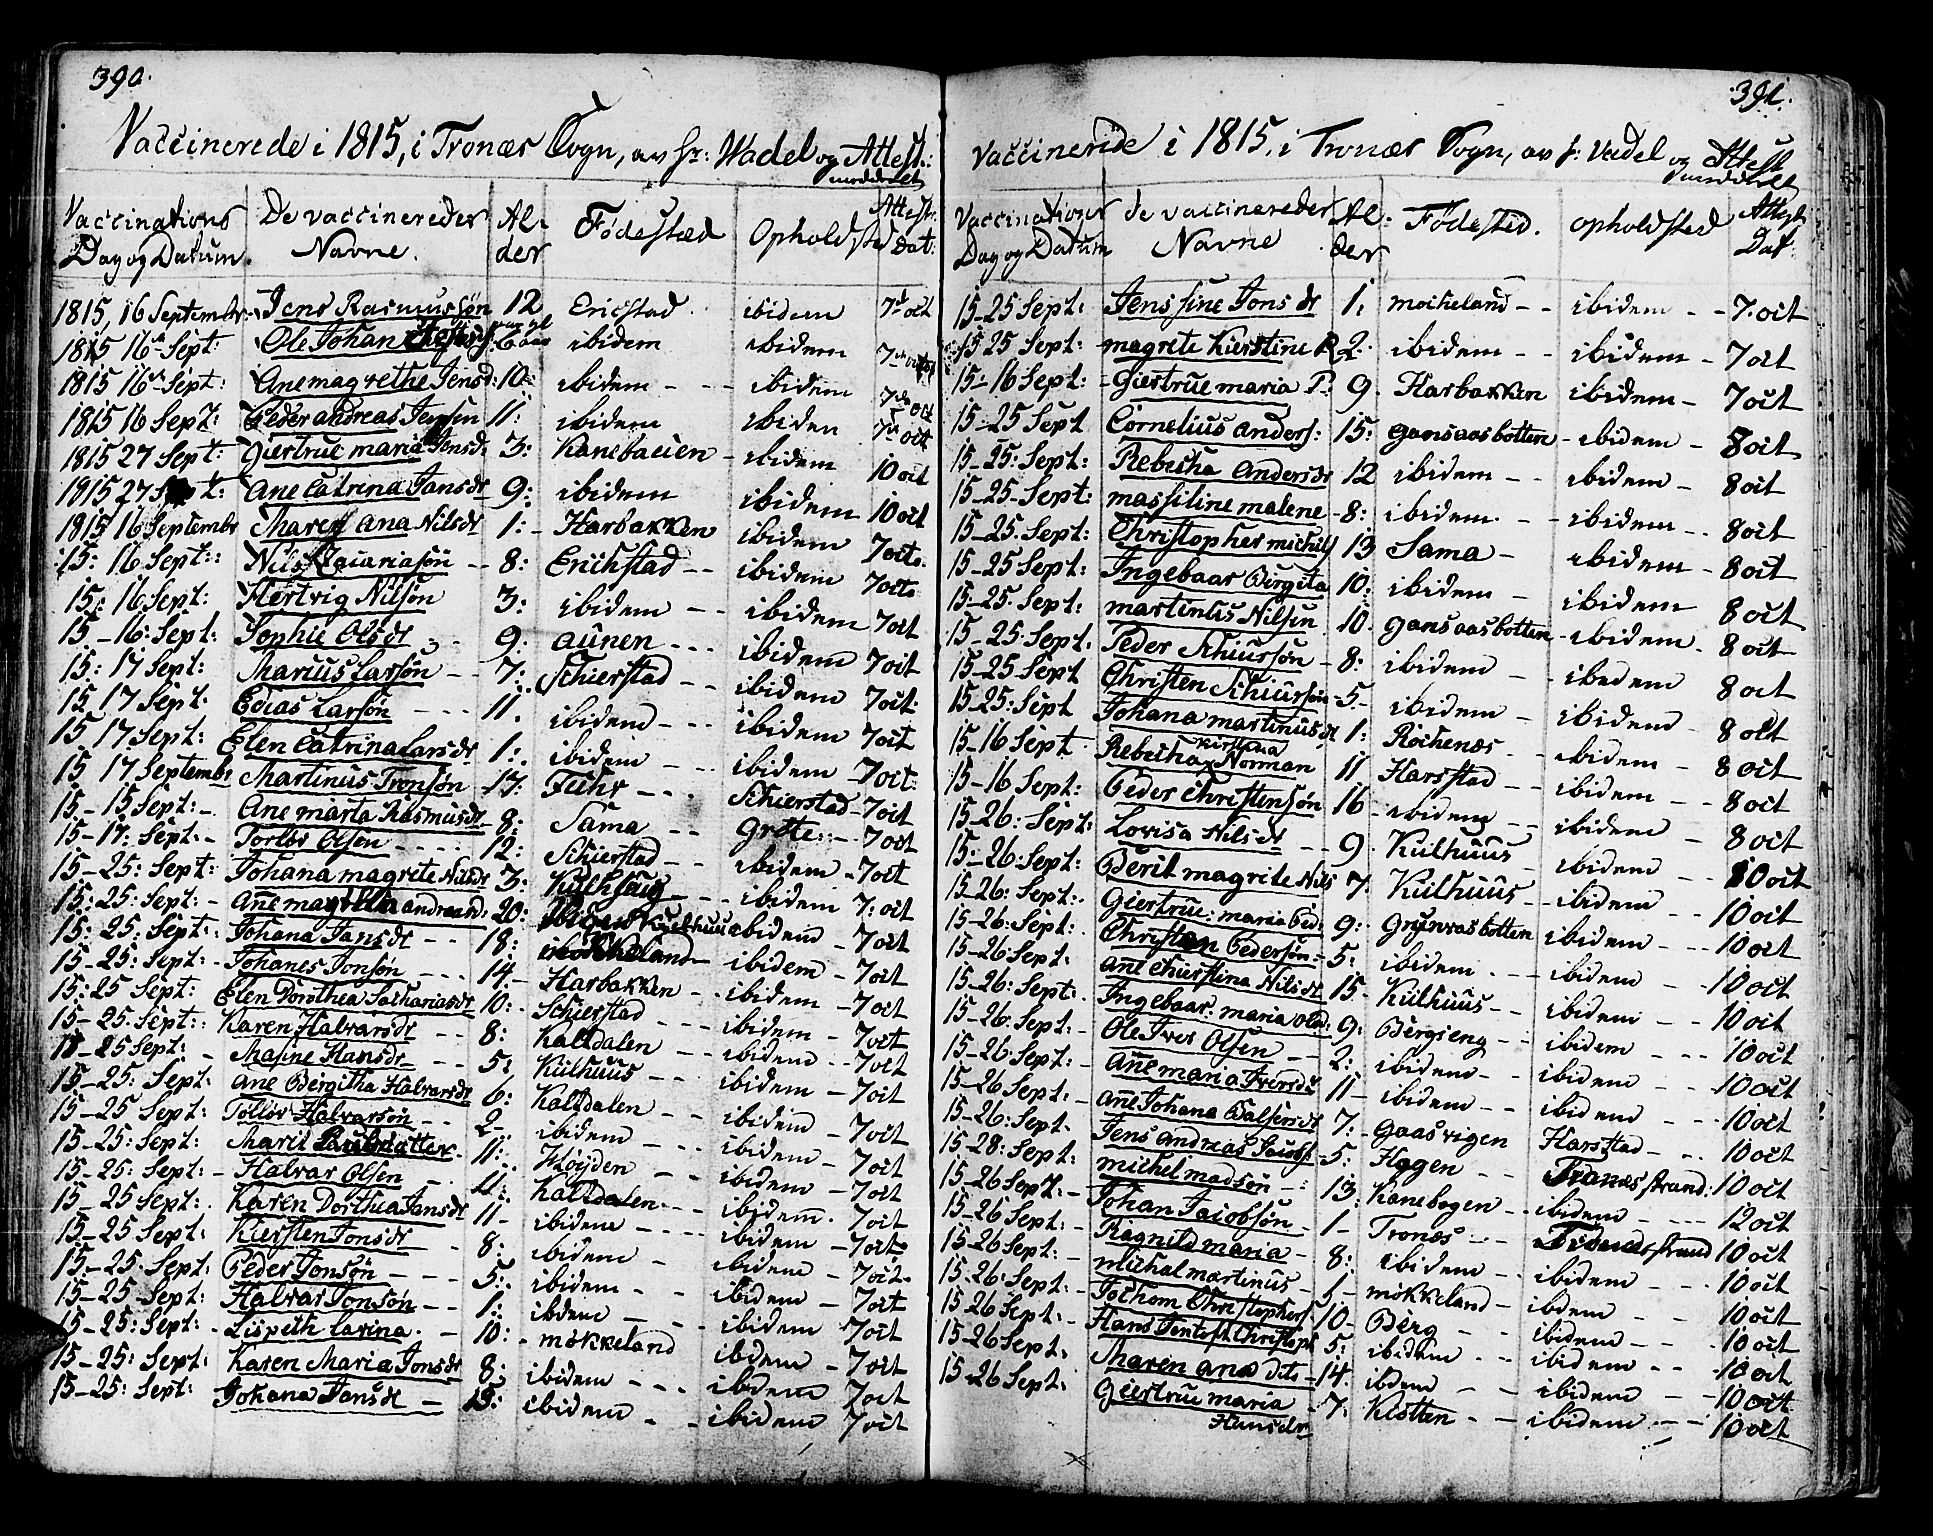 390.
Vaccinerede i 1815, i Tronæs Sogn, av Hr: Wadel og Attest:
meddeelt
Vaccinations Dag og Datum De vaccineredes Navne. Alder Fødestæd Opholdsted Attest: Dat:
1815, 16 Septembr Jens Rasmussøn 12 Ericstad. ibidem 7de oct
1815 16de Sept: Ole Johan ibidem ibidem 7de
1815 16de Sept: Ane magrethe Jensd: 10: ibidem ibidem 7de oct
1815 16 Sept: Peder andreas Jensen 11: ibidem ibidem 7de oct
1815 27 Sept: Giertrue maria Jonsd: 3: Kanebaeien ibidem 10 oct
1815 27 Sept: Ane Catrina Jansdt 9: ibidem ibidem 10 oct
1815 16 Septembr Maren ana Nilsdt 1: Harbakken ibidem 7 octo.
15: 16 Sept: Nils Zacariasøn 8: Erichstad ibidem 7 octo
15: 16 Sept: Hertvig Nilsøn 3: ibidem ibidem 7 oct
15 – 16: Sept: Sophie Olsdt 9: aunen ibidem 7 oct
15: 17 Sept: Marius Larsøn 7: Schierstad ibidem 7 oct:
15 17 Sept. Edias Larsøn 11. ibidem ibidem 7 oct
15 17 Sept: Elen Catrina Larsdt 1: ibidem ibidem 7 oct:
15 17 Septembr Martinus Tronsøn 17: Fuhr Schierstad 7 oct
15 – 15 Sept: Ane marta Rasmusdt 8: Sama Grøtte: 7 oct
15 – 17: Sept: Torlør Olsen 12: Schierstad ibidem 7 oct
15 – 25: Sept: Johana magrete Nilsdt 3: ibidem 7: oct
15: 25: Sept: Ane andreasd: 20: ibidem 7 oct
15: 25: Sept: Johana Jansdt 18: ibidem 7 oct
15 – 25: Sept: Johanes Jonsøn 14 Harbakken ibidem 7 oct
15: 25 Sept: Elen Dorothea Sachariasdt 10: Schierstad ibidem 7 oct
15 – 25: Sept: Karen Halvarsdt 8: Kaltdalen ibidem 7 oct
15 – 25 Sept: Masine Hansdt 5: Kulhuus ibidem 7 oct
15 – 25: Sept: ane Bergitha Halvarsdt 6: Kaltdalen ibidem 7 oct
15 – 25 Sept: Tollør Halvarsøn 2 ibidem ibidem 7 oct
15 – 25: Sept: Marit 11: Kløyden ibidem 7 oct
15 – 25: Sept: Halvar Olsen 4: Kaltdalen ibidem. 7 oct
15 – 25 Sept: Karen Dorthea Jansdt 11 – ibidem ibidem 7 oct
15 – 25 Sept: Kiersten Jonsdt 8: ibidem ibidem 7 oct
15 – 25: Sept: Peder Jonsøn 5: ibidem ibidem 7 oct
15 – 25 Sept: Halvar Jonsøn 1: ibdem ibidem 7 oct
15 – 25: Sept: Lispeth Carina. 10: mokkeland ibidem 7 oct
15 – 25: Sept: Karen Maria Jonsdt 8: ibidem ibidem 7 oct
15 – 25: Sept: Johana Jansdt 13: ibidem ibidem 7 oct
391.
Vaccinerede i 1815, i Tronæs Sogn, av Hr: Vadel og Attest
meddeelt
Vaccinationes Dag og Datum de vaccineredes Navne Alder Fødestid. opholdsted Attest: Dat:
15 – 25 Sept: Jens sine Jonsdt 1: mocheland ibidem 7. oct
15 25 Sept: magrete Kierstine R 2. ibidem ibidem 7 oct
15 – 16 Sept: Giertrue maria P: 9. Harbakken ibidem 7 oct
15 – 25 Sept Cornelius anders: 15: gansaasbotten ibidem 8 oct
15 – 25: Sept: Rebecha Andersdt 12 ibidem ibidem 8 oct
15 – 25 – Sept: massiline malene 8: ibidem ibidem 8 oct
15 – 25. Sept: Christopher michels 13 Sama ibidem 8 oct
15 – 25 Sept: Ingebaar Bergita 10: ibidem ibidem 8 oct
15 – 25. Sept: martinus Nilsen 10. gansaasbotten ibidem 8 oct
15 – 25: Sept. Peder Schiursøn 8: ibidem ibedem 8 oct
15 – 25 Sept Christen Schiursøn 5 – ibidem ibidem 8 oct
15 – 25: Sept Johana martinusdt 1: Rochenæs ibidem 8 oct
15 – 16 Sept. Rebecha Kirstina Norman 11 Harsstad ibidem 8 oct
15 – 16 Sept: Peder Christensøn 16 ibidem ibidem 8 oct
15 – 26: Sept: Lovisa Nilsdt 9. Kulhuus ibidem 10 oct
15 – 26: Sept: Berit magrite Nils 7. Kulhuus ibidem 10 oct
15 – 26: Sept: Giertrue: maria Ped: 9: ibidem 10 oct
15 – 26: Sept: Christen Pedersøn 5: ibidem ibidem 10 oct
15 – 26 Sept: ane Chirstina Nilsdt 15 – Kulhuus ibidem 10 oct
15 – 26: Sept: Ingebaar: maria Olsd: 9: Bergseng ibidem 10 oct
15 – 26: Sept: Ole Iver Olsen 2: ibidem ibidem 10 oct
15 – 26 Sept: ane maria Iversdt 11 – ibidem ibidem 10 oct
15 – 26: Sept. ane Johana Balsersdt 7: Gaasvigen Harsstad 10 oct
15 – 28: Sept: Jens andreas Jacobs: 5: Hagen Tranæs strand: 10 oct
15 – 26 Sept: michel madsøn 13. Kanebogen ibidem 12 oct
15 – 26 Sept: Johan Jacobsøn 1 – Tronæs 10 oct
15 – 26 Sept: Ragnild maria 8: ibidem ibidem 10 oct
15 – 26: Sept: michal martinus mokkeland ibdem 10 oct
15 26 Sept: Jochom Christophers: 10 – Berg ibidem 10 oct
15 – 26 Sept: Hans Tentoft Christoph 5: ibidem ibidem 10 oct
15 – 26 Sept: Maren ana dito 14. ibdem ibidem 10 oct
15 – 26 Sept: Giertrue maria Hansdr 7. Kiotten ibidem 10 oct